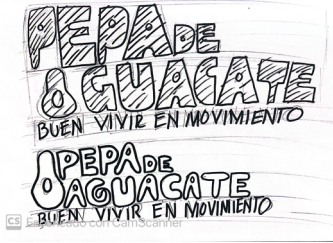 PEPA DE
AGUACATE
BUEN VIVIR EN MOVIMIENTO
PEPA DE
AGUACATE
BUEN VIVIR EN MOVIMIENTO
CS Escaneado con CamScanner